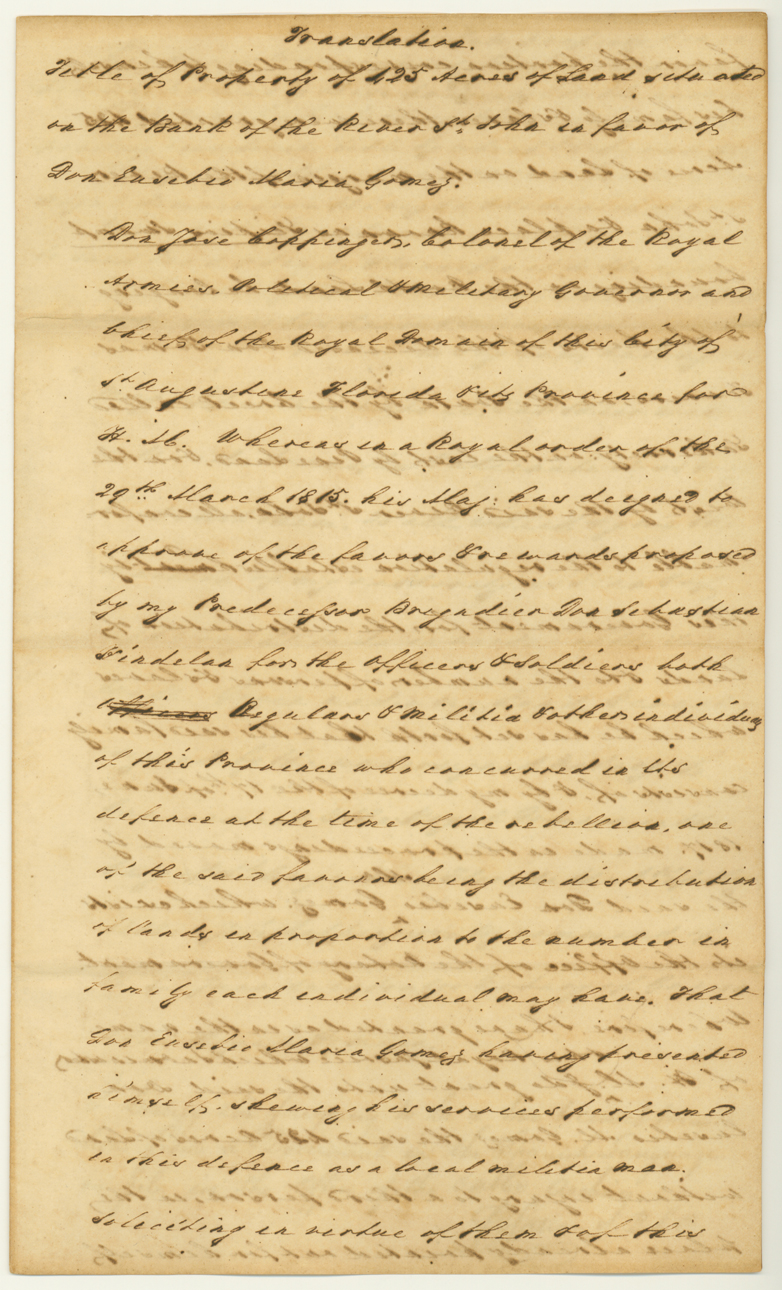 Translation.
Title of Property of 425 Acres of Land situated
on the Bank of the River St. John in favor of
Don Eusebio Maria Gomez.
Don Jose Coppinger, Colonel of the Royal
Armies, Political & Military Governor and
Chief of the Royal Domain of this City of
St. Augustine Florida & its Province for
H. M. Whereas in a Royal order of the
29th March 1815. his Maj: has deigned to
approve of the favors & rewards proposed
by my Predecessor Brigadier Don Sebastian
Kindelan for the Officers & Soldiers both
Officers Regulars & Militia & other individuas
of this Province who concurred in its
defence at the time of the rebellion, one
of the said favors being the distribution
of Lands in proportion to the number in
family each individual may have. That
Don Eusebio Maria Gomez having presented
himself, shewing his services performed
in this defence as a local militia man.
Soliciting in virtue of them & of this